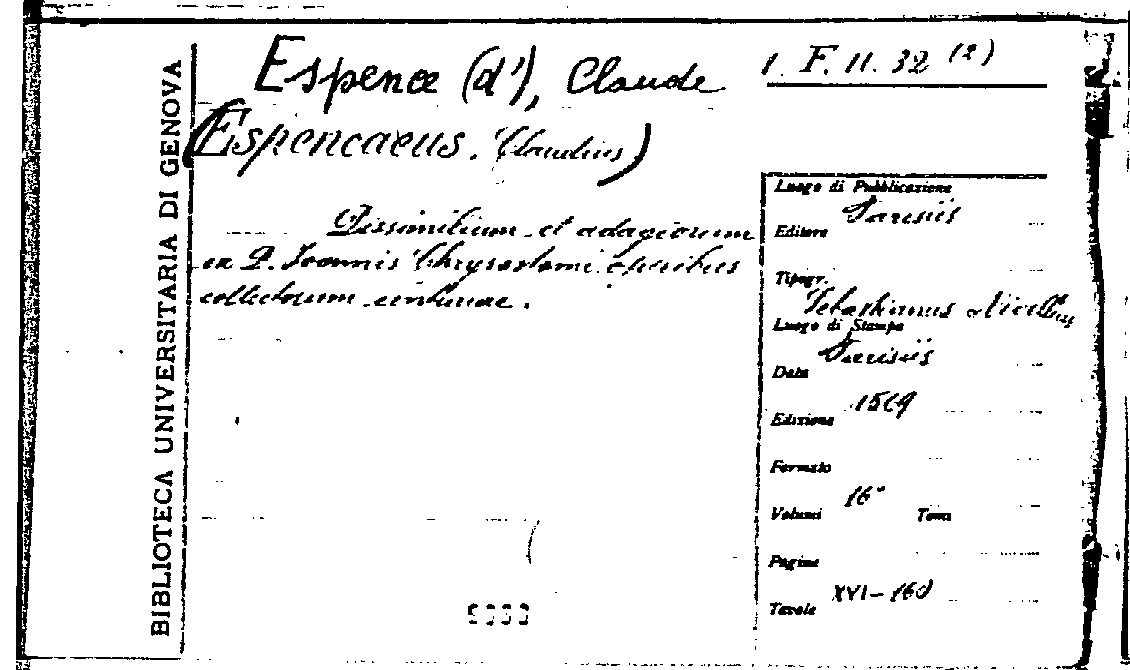 BIBLIOTECA UNIVERSITARIA DI GENOVA
Espence (d'), Claude
1. F. 11. 32 (2)
(Espencaeus. Claudius)
Luogo di Pubblicazione
Parisiis
Dissimilium et adagiorum
Editore
ex D. Joannis Chrysostomi operibus
Tipogr.
collectorum
Sebastianus Nivellius
Luogo di Stampa
Parisiis
Data
Edizione
Formato
16°
Volumi Tomi
Pagine
XVI-160
Tavole